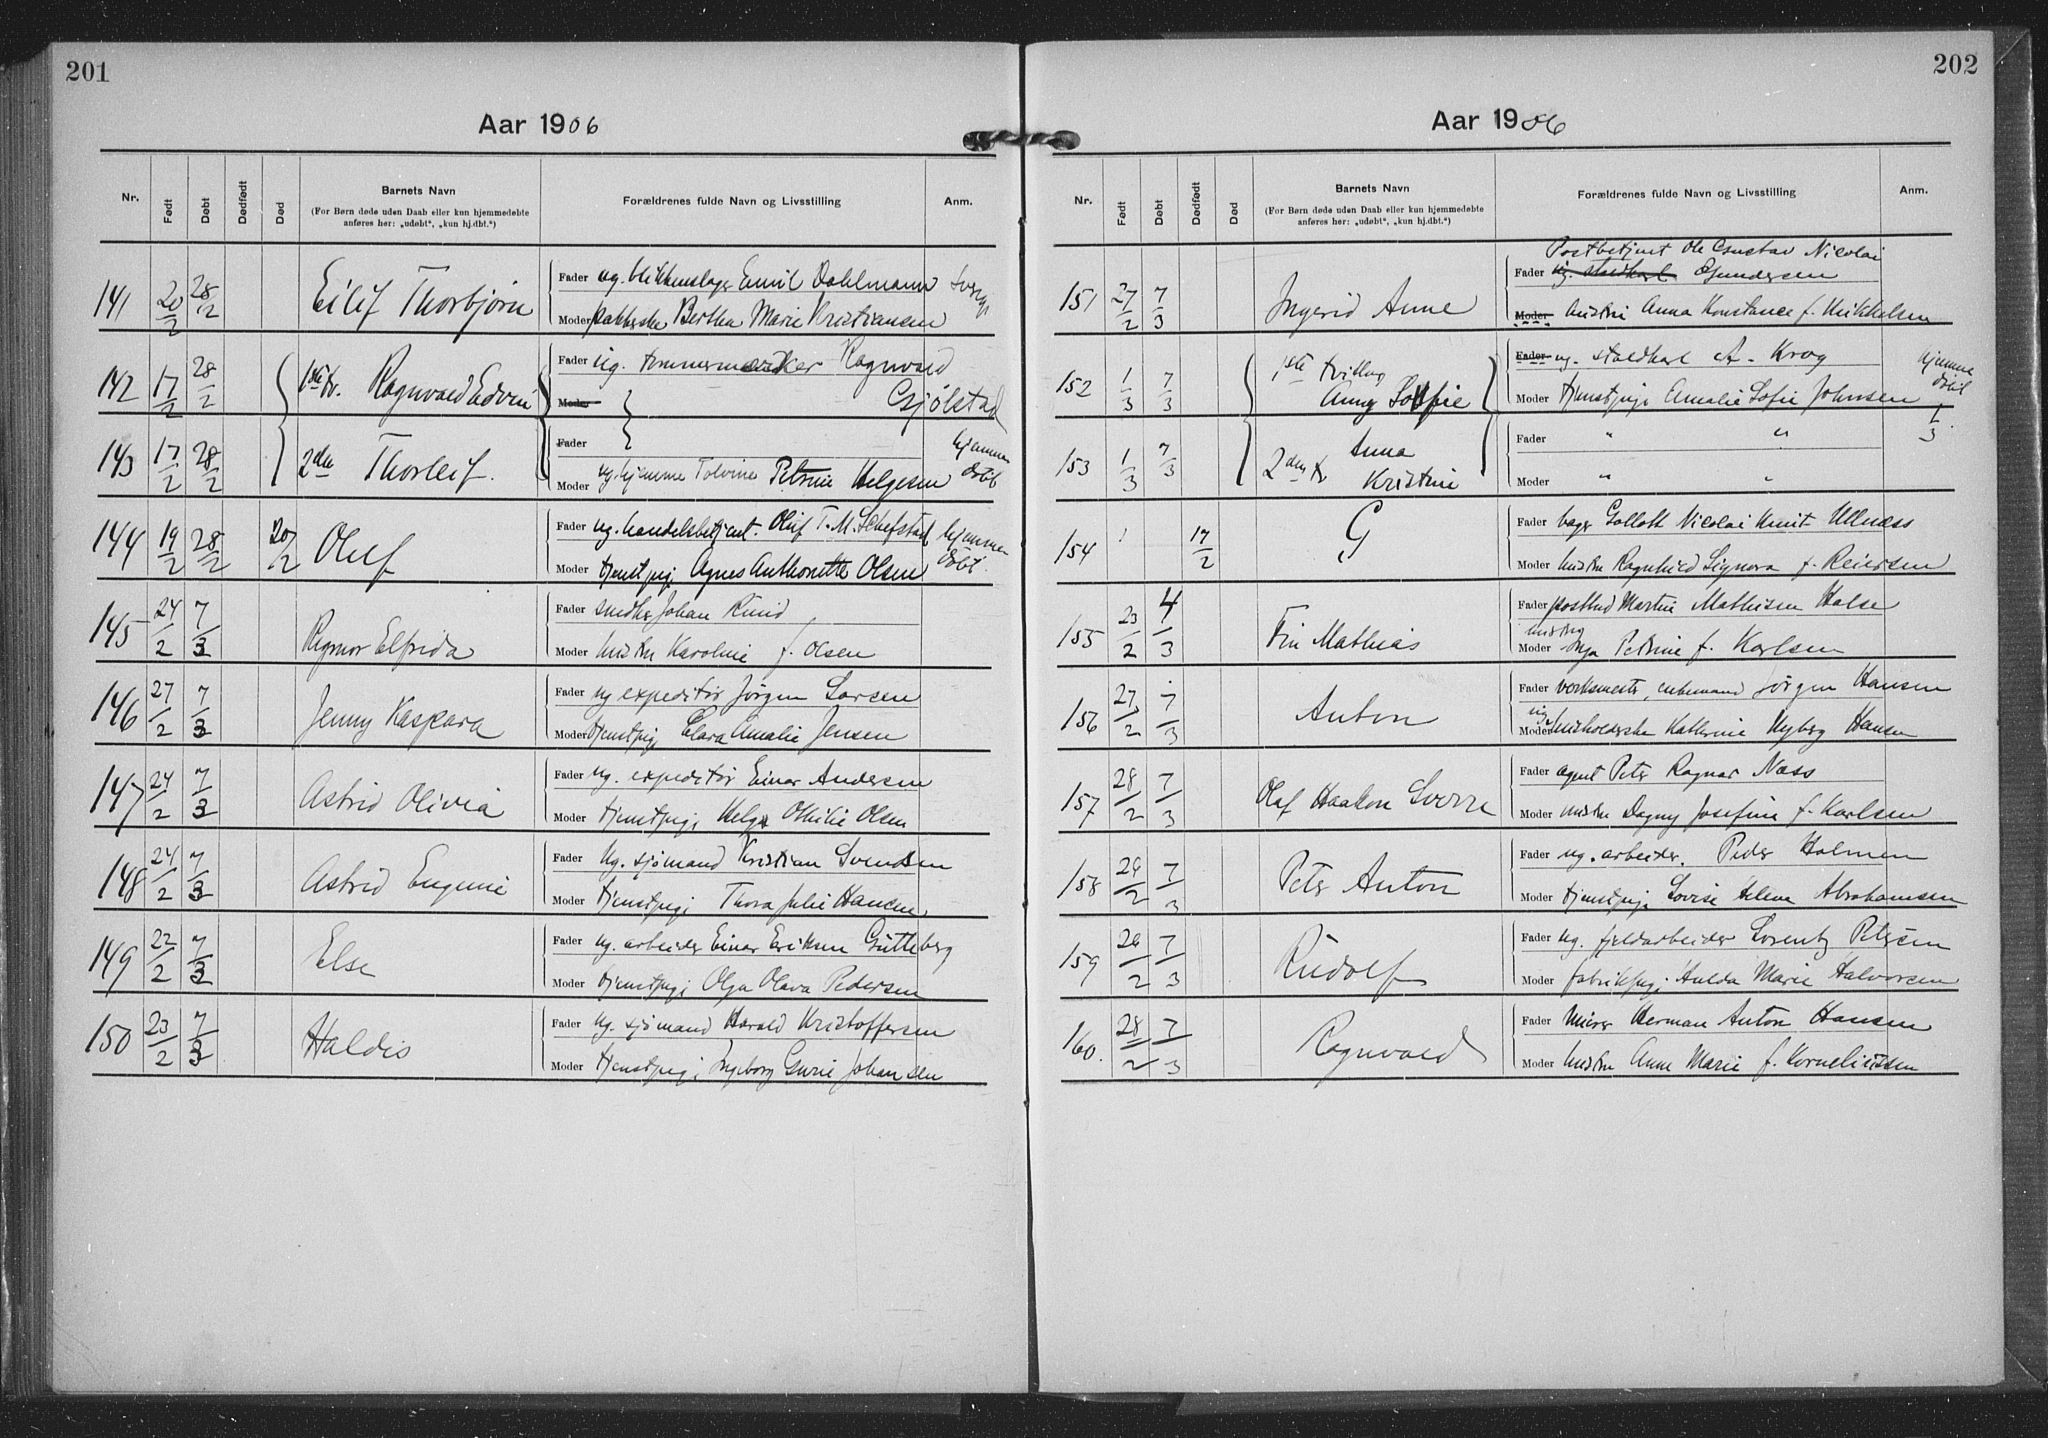 201
Aar 1906
Nr. Født Døbt Dødfødt Død Barnets Navn (For Børn døde uden Daab eller kun hjemmedøbte anføres her: „udøbt“, „kun hj.dbt.“) Forældrenes fulde Navn og Livsstilling Anm.
141 20/2 28/2 Eilif Thorbjørn
Fader ug. blikkenslager Emil Dahlmann
Moder Bertha Marie Kristiansen
142 17/2 28/2 1ste tv. Ragnvald Edvin
Fader ug. tømmermand Ragnvald
Moder Gjølstad
143 17/2 28/2 2den Thorleif.
Fader hjemme
Moder ug. hjemme Tolvine Petrine Helgesen døbt
144 19/2 28/2 20/2 Oluf
Fader ug. handelsbetjent. Oluf T. M. hjemme
Moder tjenstpig. Agnes Anthonette Olsen døbt
145 24/2 7/3 Ragnor Elfrida
Fader snedker Johan Ruud
Moder hustru Karoline f. Olsen
146 27/2 7/3 Jenny Kaspara
Fader ug expeditør Jørgen Larsen
Moder tjenstpig. Clara Amalie Jensen
147 24/2 7/3 Astrid Olivia
Fader ug. expeditør Einar Andersen
Moder tjenstpig. Helga Othilie Olsen
148 24/2 7/3 Astrid Eugenie
Fader ug. sjømand Kristian Svendsen
Moder tjenstpig. Thora Julie Hansen.
149 22/2 7/3 Else
Fader ug. arbeider Einar Eriksen Gutteberg
Moder tjenstpig. Olga Olava Pedersen
150 23/2 7/3 Haldis
Fader ug. sjømand Harald Kristoffersen
Moder tjenstpig. Ingeborg Gurie Johansen
202
Aar 1906
Nr. Født Døbt Dødfødt Død Barnets Navn (For Børn døde uden Daab eller kun hjemmedøbte anføres her: „udøbt“, „kun hj.dbt.“) Forældrenes fulde Navn og Livsstilling Anm.
Postbetjent Ole Gustav Nicolai
151 27/2 7/3 Ingerid Anne
Fader ug. staldkarl Gundersen
Moder hustru Anna Konstance f. Mikkelsen
152 1/3 7/3 1ste tvilling Anny Sofie
Fader ug. staldkarl A. Krog hjemme
Moder tjenstpige Amalie Sofie Johnsen døbt 1/3
153 1/3 7/3 2den tv. Anna Kristine
Fader " "
Moder " "
154 17/2 G
Fader bager Nicolai Ullnæss
Moder hustru Ragnhild Signora f. Reiersen
155 23/2 4/3 Fin Mathias
Fader postbud Martin Mathisen Halse
Moder hustru Inga Petrine f. Karlsen
156 27/2 7/3 Anton
Fader verksmester, enkemand Jørgen Hansen
Moder ug husholderske Katherine Nyberg Hansen
157 28/2 7/3 Olaf Haakon Sverre
Fader agent Peter Ragnar Næss
Moder hustru Dagny Josefine f. Karlsen
158 26/2 7/3 Peter Anton
Fader ug. arbeider. Peder Holmen
Moder tjenstpige Lovise Helene Abrahamsen
159 26/2 7/3 Rudolf
Fader ug. fjeldarbeider Lorentz Petersen
Moder fabrikpig. Hulda Marie Halvorsen
160. 28/2 7/3 Ragnvald
Fader murer Herman Anton Hansen
Moder hustru Anne Marie f. Korneliussen